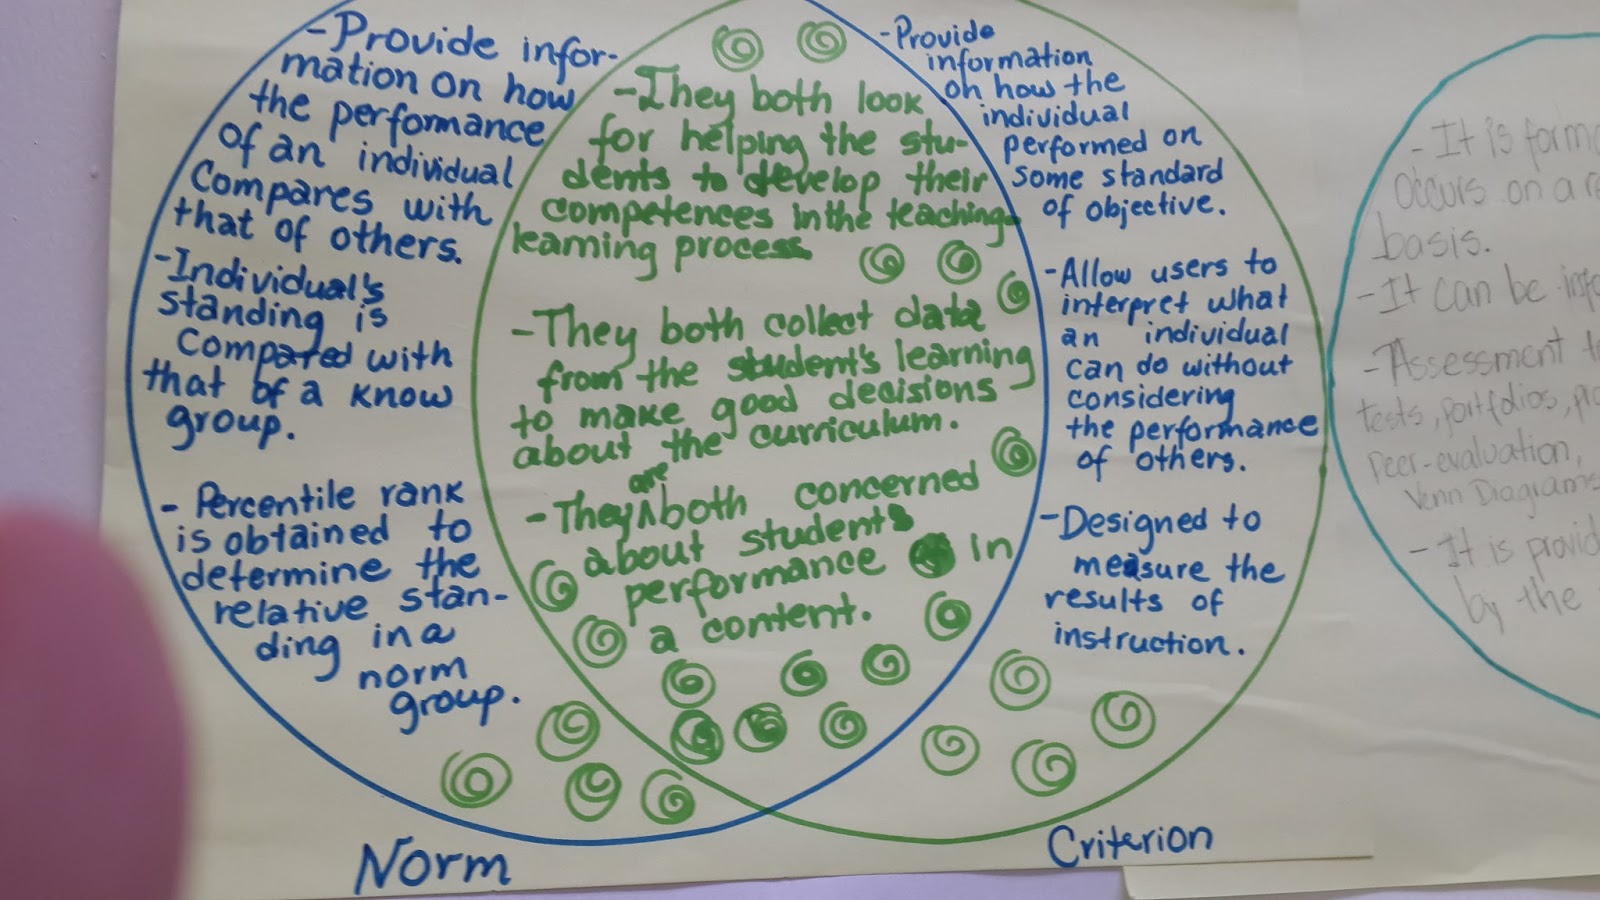 -Provide infor-
mation on how
the performance
of an individual
compares with
that of others.
-Individual's
standing is
compared with
that of a know
group.
- Percentile rank
is obtained to
determine the
relative stan-
ding in a
norm
group.
-They both look
for helping the stu-
dents to develop their
competences in the teaching-
learning process.
-They both collect data
from the student's learning
to make good decisions
about the curriculum.
are
-They ^ both concerned
about students
performance in
a content.
-Provide
information
on how the
individual
performed on
some standard
of objective.
-Allow users to
interpret what
an individual
can do without
considering
the performance
of others.
-Designed to
measure the
results of
instruction.
Norm
Criterion
- It is
occurs on a
basis.
- It can be
- Assessment
tests, portfolios,
peer-evaluation,
Venn Diagrams
- It is
by the